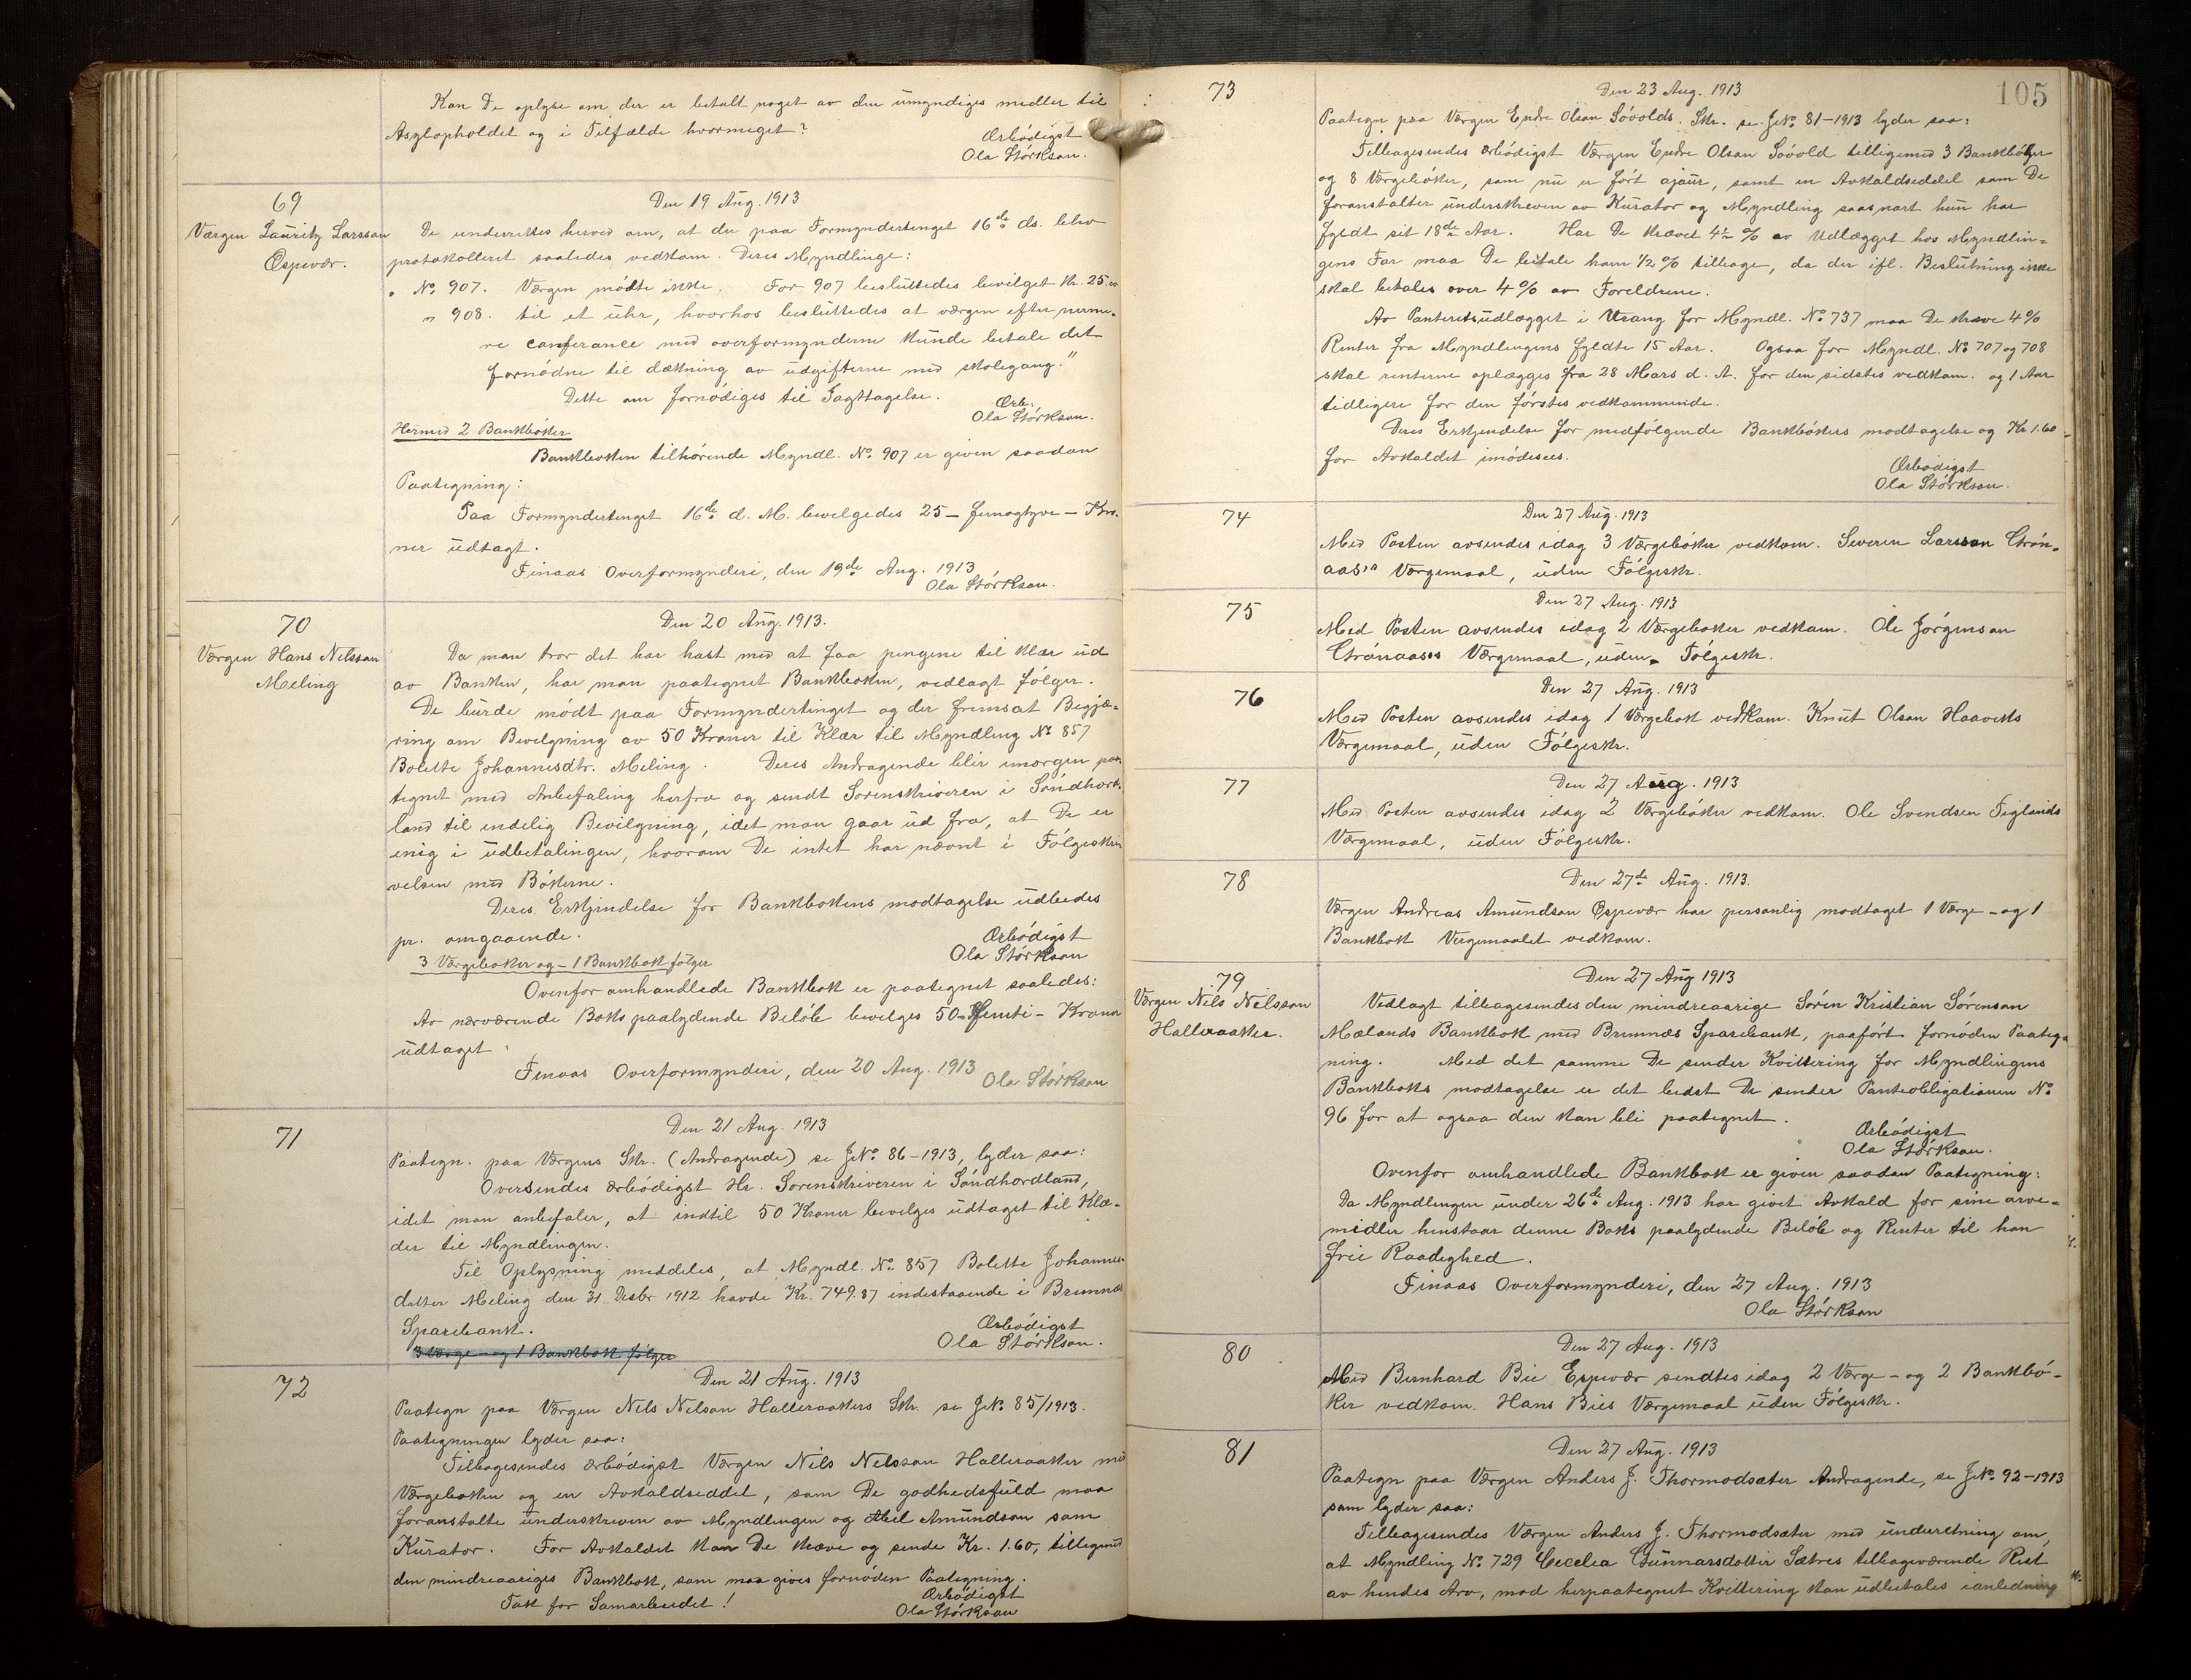 Kan De oplyse om der er betalt noget av den umyndiges medler til
Asylopholdet og i Tilfælde hvormeget?
Ærbødigst
Ola Størkson.
69
Den 19 Aug. 1913
Værgen Lauritz Larsson
Espevær.
De underrettes herved om, at der paa Formyndertinget 16de ds. blev
protokolleret saaledes vedkom. Deres Myndlinge:
" No 907. Værgen mødte ikke. For 907 besluttedes bevilget Kr. 25.00
" 908. til et uhr, hvorhos besluttedes at værgen efter nerme-
re conferance med overformynderne kunde betale det
fornødne til dækning av udgifterne med skolegang."
Dette om fornødiges til Iagttagelse.
Ærb.
Ola Størkson.
Hermed 2 Bankbøker
Bankboken tilhørende Myndl. No. 907 er given saadan
Paategning:
Paa Formyndertinget 16de d. M. bevilgedes 25 - femogtyve - Kro-
ner udtagt.
Finaas Overformynderi, den 19de Aug. 1913
Ola Størkson.
70
Den 20 Aug. 1913.
Værgen Hans Nilsson
Meling
Da man tror det har hast med at faa pengene til klær ud
av Banken, har man paategnet Bankboken, vedlagt følger.
De burde mødt paa Formyndertinget og der fremsat Begjæ-
ring om Bevilgning av 50 Kroner til Klær til Myndling No 857
Bolette Johannesdtr. Meling. Deres Andragende blir imorgen paa
tegnet med Anbefaling herfra og sendt Sorenskriveren i Søndhord-
land til endelig Bevilgning, idet man gaar ud fra, at De er
enig i udbetalingen, hvorom De intet har nævnt i Følgeskri
velsen med Bøkerne.
Deres Erkjendelse for Bankbokens modtagelse udbedes
pr. omgaaende.
Ærbødigst
Ola Størkson
3 Værgebøker og - 1 Bankbok følger
Ovenfor omhandlede Bankbok er paategnet saaledes:
Av nærværende Boks paalydende Beløb bevilges 50 - Femti - Kroner
udtaget.
Finaas Overformynderi, den 20 Aug. 1913
Ola Størkson
71
Den 21 Aug. 1913
Paategn. paa Værgens Skr. (Andragende) se J.No. 86-1913, lyder saa:
Oversendes ærbødigst Hr. Sorenskriveren i Søndhordland,
idet man anbefaler, at indtil 50 Kroner bevilges udtaget til Klæ-
der til Myndlingen.
Til Oplysning meddeles, at Myndl. No 857 Bolette Johannes-
datter Meling den 31 Desbr 1912 havde Kr. 749.37 indestaaende i Bremnes
Sparebank.
Ærbødigst
Ola Størkson.
3 Værge - og 1 Bankbok følger
72
Den 21 Aug. 1913
Paategn paa Værgen Nels Nelson Halleraakers Skr. se J.No. 85/1913.
Paategningen lyder saa:
Tilbagesendes ærbødigst Værgen Nils Nelsson Halleraaker med
Værgeboken og en Avkaldseddel, som De godhedsfuld maa
foranstalte underskreven av Myndlingen og Amundson som
Kurator. For Avkaldet kan De kræve og sende Kr. 1.60, tilligemed
den mindreaariges Bankbok, som maa gives fornøden Paategning.
Takk for Samarbeidet!
Ærbødigst
Ola Størkson
105
73
Den 23 Aug. 1913
Paategn paa Værgen Endre Olson Søvolds. Skr. se J.No. 81-1913 lyder saa:
Tilbagesendes ærbødigst Værgen Endre Olson Søvold tilligemed 3 Bankbøker
og 8 Værgebøker, som nu er ført ajour, samt en Avkaldseddel som De
foranstalter underskreven av Kurator og Myndling saasnart hun har
fyldt sit 18de Aar. Har De krævet 4½ % av Udlægget hos Myndlin-
gens Far maa De betale ham 1/2 % tilbage, da der ifl. Beslutning ikke
skal betales over 4 % av Foreldrene.
Av Panteretsudlægget i Urang for Myndl. No. 737 maa De kræve 4 %
Renter fra Myndlingens fyldte 15 Aar. Ogsaa for Myndl. No 707 og 708
skal renterne oplægges fra 28 Mars d. A. for den sidstes vedkom. og 1 Aar
tidligere for den førstes vedkommende.
Deres Erkjendelse for medfølgende Bankbøkers modtagelse og Kr 1.60
for Avkaldet imødesees.
Ærbødigst
Ola Størkson.
74
Den 27 Aug. 1913
Med Posten avsendes idag 3 Værgebøker vedkom. Severin Larsson Grøn-
aas's Værgemaal, uden Følgeskr.
75
Den 27 Aug. 1913
Med Posten avsendes idag 2 Værgebøker vedkom. Ole Jørgenson
Grønaas's Værgemaal, uden Følgeskr.
76
Den 27 Aug. 1913
Med Posten avsendes idag 1 Værgebok vedkom. Knut Olson Haaviks
Værgemaal, uden Følgeskr.
77
Den 27 Aug. 1913
Med Posten avsendes idag 2 Værgebøker vedkom. Ole Svendsen Tiglands
Værgemaal, uden Følgeskr.
78
Den 27de Aug. 1913.
Værgen Andreas Amundson Espevær har personlig modtaget 1 Værge - og 1
Bankbok Vergemaalet vedkom.
79
Den 27 Aug 1913
Værgen Nils Nilsson
Halleraaker.
Vedlagt tilbagesendes den mindreaarige Søren Kristian Sørenson
Mælands Bankbok med Bremnæs Sparebank, paaført fornøden Paateg-
ning. Med det samme De sender Kvittering for Myndlingens
Bankboks modtagelse er det bedst De sender Panteobligationen No
96 for at ogsaa den kan bli paategnet.
Ærbødigst
Ola Størkson.
Ovenfor omhandlede Bankbok er given saadan Paategning:
Da Myndlingen under 26de Aug. 1913 har givet Avkald for sine arve-
midler henstaar denne Boks paalydende Beløb og Renter til han
frie Raadighed.
Finaas Overformynderi, den 27 Aug. 1913
Ola Størkson
80
Den 27 Aug. 1913
Med Bernhard Bie Espevær sendtes idag 2 Værge - og 2 Bankbø-
ker vedkom. Hans Bies Værgemaal uden Følgeskr.
81
Den 27 Aug. 1913
Paategn paa Værgen Anders J. Thormodsæter Andragende, se J.No. 92-1913
som lyder saa:
Tilbagesendes Værgen Anders J. Thormodsæter med underretning om,
at Myndling No. 729 Cecelia Gunnarsdotter Sætres tilbageværende Rest
av hendes Arv, mod herpaategnet Kvittering kan udbetales ianledning